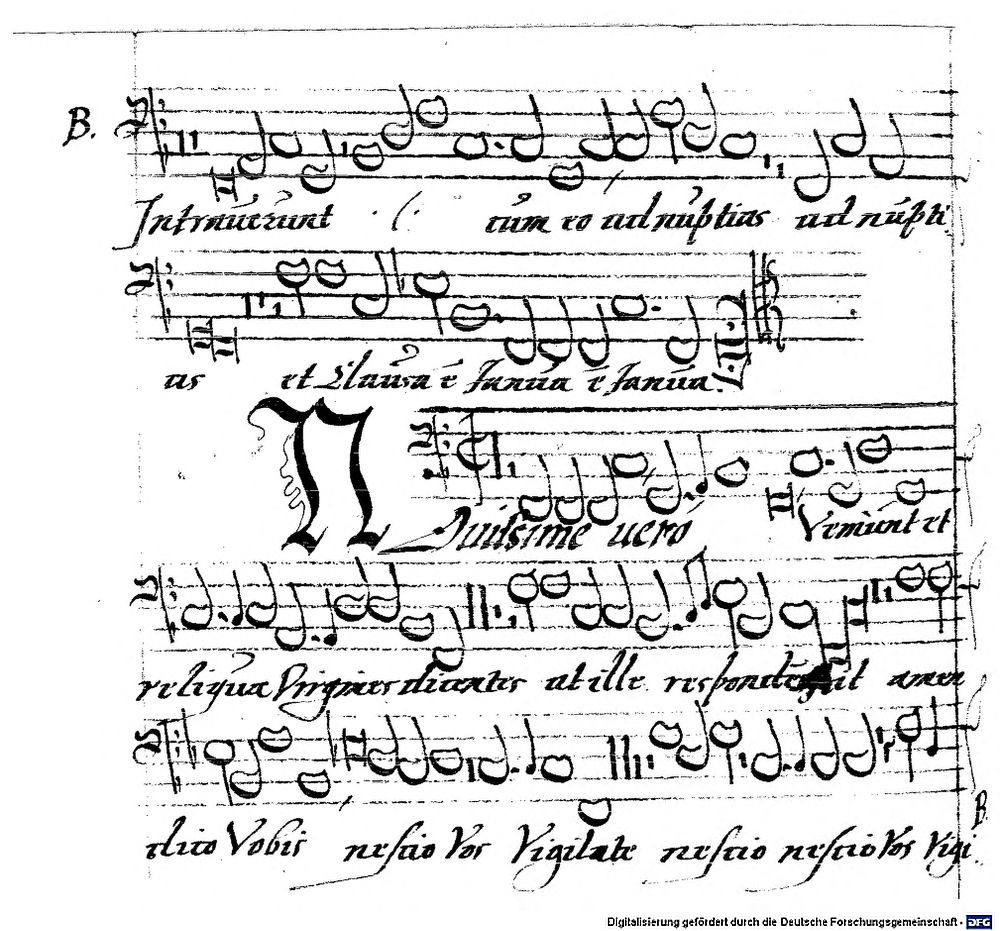 B.
Intraverunt cum eo ad nuptias ad nupti
as et Clausa ẽ Ianua ẽ Ianua.
Nouissime uero Veniunt et
reliqua Virgines dicentes at ille amen
dico Vobis nescio Vos Vigilate nescio nescio Vos Vigi
B.
Digitalisierung gefördert durch die Deutsche Forschungsgemeinschaft - DFG